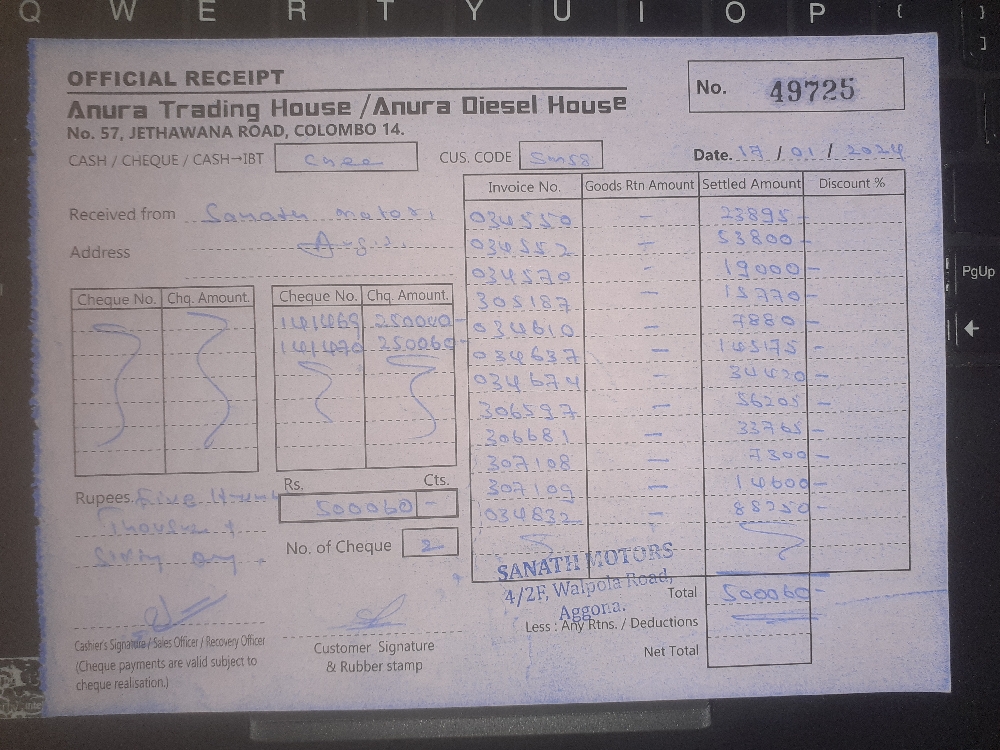 Q W E R T Y U I O P { }
]
PgUp
OFFICIAL RECEIPT
Anura Trading House /Anura Diesel House
No. 57, JETHAWANA ROAD, COLOMBO 14.
No. 49725
CASH / CHEQUE / CASH→IBT
CUS. CODE Sm58
Date. 17 / 01 / 2024
Received from Sanath motors
Address
Invoice No. Goods Rtn Amount Settled Amount Discount %
034550 – 23895 –
034552 – 53800 –
034570 – 19000 –
305187 – 15770 –
034610 – 7880 –
034637 – 145175 –
034674 34420 –
306597 – 56205 –
306681 – 33765 –
307108 – 7300 –
307109 – 14600 –
034832 – 88250 –
Cheque No. Chq. Amount.
Cheque No. Chq. Amount.
141469 250000 –
141470 250060 –
Rupees. Five
Thousand
Sixty only
Rs. Cts.
500060 –
No. of Cheque 2
SANATH MOTORS
4/2F, Walpola Road,
Aggona.
Total 500060 –
Less : Any Rtns. / Deductions
Net Total
Cashier's Signature / Sales Officer / Recovery Officer
(Cheque payments are valid subject to
cheque realisation.)
Customer Signature
& Rubber stamp